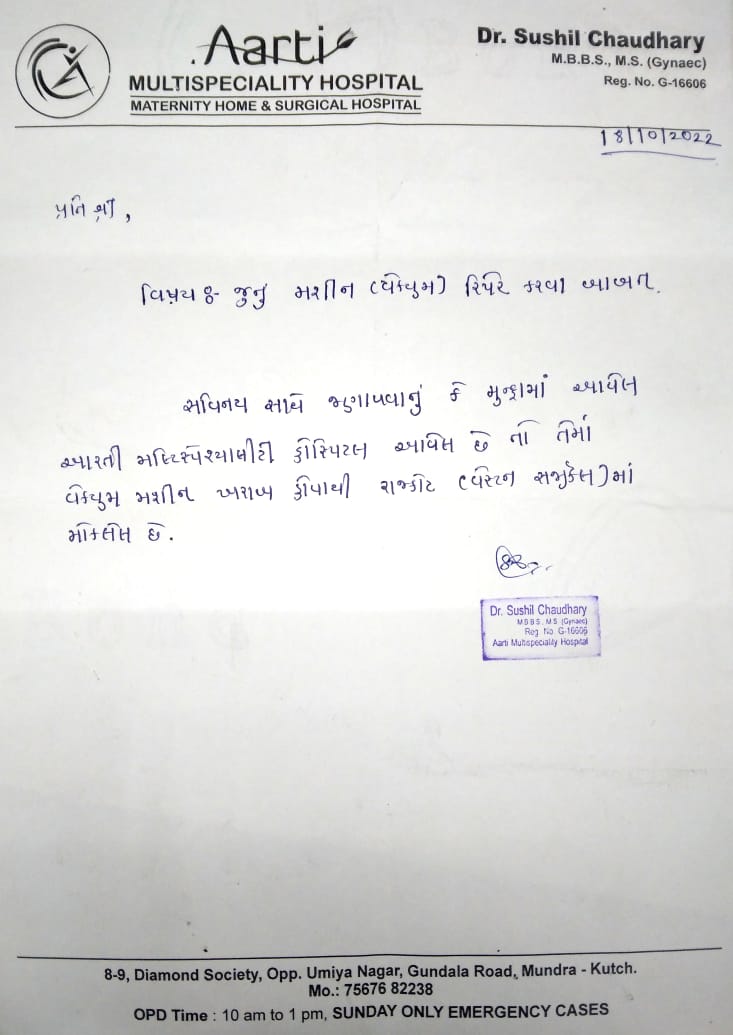 Aarti
MULTISPECIALITY HOSPITAL
MATERNITY HOME & SURGICAL HOSPITAL
Dr. Sushil Chaudhary
M.B.B.S., M.S. (Gynaec)
Reg. No. G-16606
18/10/2022
પ્રતિ શ્રી,
વિષય ઃ- જુનું મશીન (વેક્યુમ) રિપેર કરવા બાબત.
સવિનય સાથે જણાવવાનું કે મુન્દ્રામાં આવેલ
આરતી મલ્ટિસ્પેશ્યાલીટી હોસ્પિટલ આવેલ છે તો તેમાં
વેક્યુમ મશીન ખરાબ હોવાથી રાજકોટ (વેસ્ટન સર્જીકલ) માં
મોકલેલ છે.
Dr. Sushil Chaudhary
M.B.B.S. M.S. (Gynaec)
Reg. No. G-16606
Aarti Multispeciality Hospital
8-9, Diamond Society, Opp. Umiya Nagar, Gundala Road, Mundra - Kutch.
Mo.: 75676 82238
OPD Time : 10 am to 1 pm, SUNDAY ONLY EMERGENCY CASES